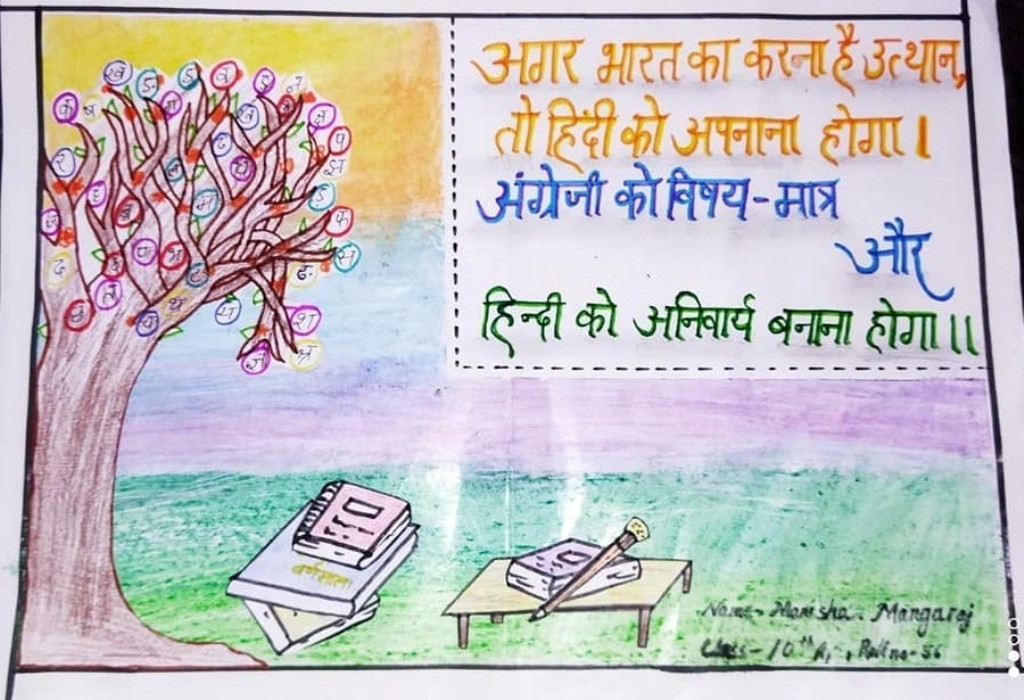 अगर भारत का करना है उत्थान,
तो हिंदी को अपनाना होगा।
अंग्रेजी को विषय-मात्र
और
हिन्दी को अनिवार्य बनाना होगा॥
वर्णमाला
Name- Manisha Mangaraj
Class- 10th A, Roll no- 56